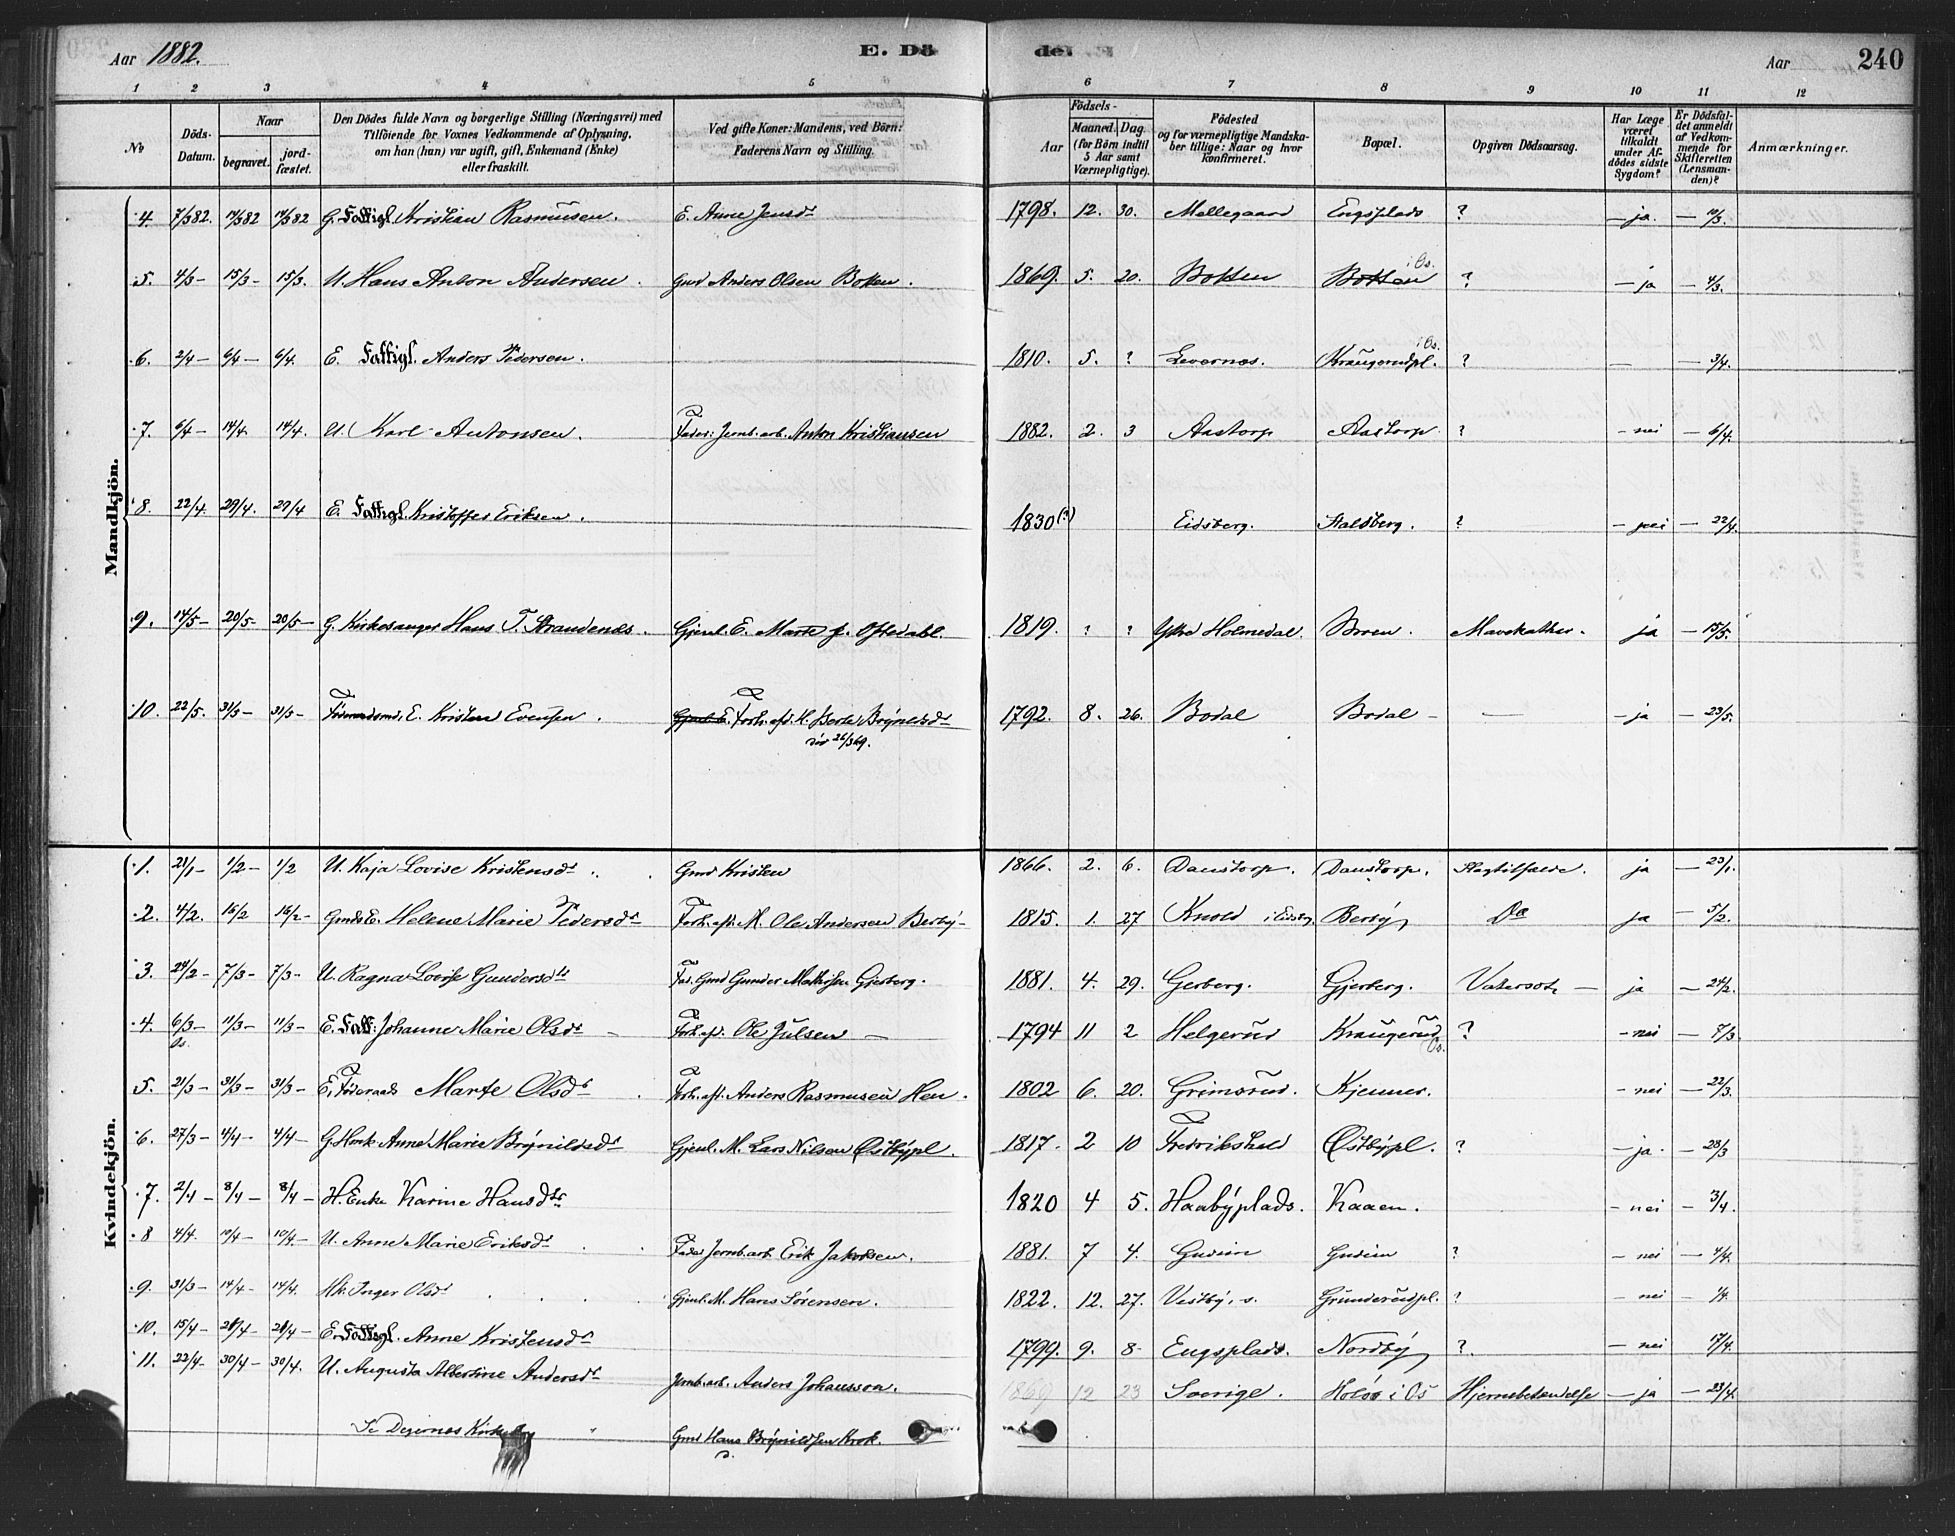 Aar 1882. E. Dö de. Aar 240
1 2 3 4 5 6 7 8 9 10 11 12
No
Döds-Datum.
Naar
begravet.
jord-fæstet.
Den Dödes fulde Navn og borgerlige Stilling (Næringsvei) med
Tilföiende for Voxnes Vedkommende af Oplysning,
om han (hun) var ugift, gift, Enkemand (Enke)
eller fraskilt.
Ved gifte Koner: Mandens, ved Börn:
Faderens Navn og Stilling.
Födsels-
Aar
Maaned. Dag.
(for Börn indtil
5 Aar samt
Værnepligtige).
Födested
og for værnepligtige Mandska-
ber tillige: Naar og hvor
konfirmeret.
Bopæl.
Opgiven Dödsaarsag.
Har Læge
været
tilkaldt
under Af-
dödes sidste
Sygdom?
Er Dödsfal-
det anmeldt
af Vedkom-
mende for
Skifteretten
(Lensman-
den)?
Anmærkninger.
Mandkjön.
4. 7/3 82. 14/3 82 14/3 82 G. Fattigl. Kristian Rasmusen. E. Anne Jensdr 1798. 12. 30. Mellegaard Engsplads ? – ja. – 10/3.
5. 4/3 – 15/3 – 15/3. U. Hans Anton Andersen. Gmd Anders Olsen Botten. 1869. 5. 20. Botten Botten i Os. ? – ja – 4/3.
6. 2/4 – 6/4 – 6/4. E. Fattigl. Anders Pedersen. 1810. 5. ? Levernes. Kraugerudpl. i Os. ? – – 3/4.
7. 6/4 – 14/4. 14/4. U. Karl Antonsen. Fader: Jernb. arb. Anton Kristiansen 1882. 2. 3 Aastorp Aastorp. ? – nei – 6/4.
8. 22/4. 29/4. 29/4 E. Fattigl. Kristoffer Eriksen. 1830 (?) Eidsberg. Stalsberg. ? – nei – 22/4.
9. 14/5 – 20/5 – 20/5 – G. Kirkesanger Hans T. Strandenæs. Gjenl. E. Marte f. Oftedahl 1819. ? ? Ytre Holmedal. Broen. Mavekathar. ja – 15/5.
10. 22/5. 31/5 – 31/5 – E. Kristen Evensen. Gjenl. E. Forh. afd. H. Berte Brynildsdr 1792. 8. 26. Bodal Bodal – – – ja – 23/5.
död 26/3 69.
Kvindekjön.
1. 21/1 – 1/2 – 1/2 U. Kaja Lovise Kristensdr Gmd Kristen 1866. 2. 6. Danstorp. Danstorp. Slagtilfælde. ja – 23/1.
2. 4/2. 16/2 16/2 – Gmds E. Helene Marie Pedersdr Forh. aft. M. Ole Andersen Berby – 1815. 1. 27 Knold i Eidsbg. Berby Do ja – 5/2.
3. 24/2 – 7/3 – 7/3 – U. Ragna Lovise Gundersdtr Fad. Gmd Gunder Mathisen Gjerberg. 1881. 4. 29. Gerberg. Gjerberg. Vatersot – ja – 24/2.
4. 6/3 – 11/3 – 11/3 – E. Fatt: Johanne Marie Olsdr – Forh. af. Ole Julsen – 1794 11 2 Helgerud Kraugerud ? – nei – 7/3.
Os. Os.
5. 21/3 – 31/3 – 31/3 – E. Föderaads Marte Olsdr Forh. aft. Anders Rasmusen Hen. 1802 6. 20. Grimsrud. Kjenner. – nei – 22/3.
6. 27/3 – 4/4 – 4/4 – G. Hmk Anne Marie Brynildsdr Gjenl. M. Lars Nilsen Østbypl. 1817. 2 10 Fredrikshald Østbypl. ? – ja. – 28/3
7. 2/4 – 8/4 – 8/4 – H. Enke Karine Hansdtr 1820 4 5. Haabyplads. Kaaen. – nei – 3/4.
8 4/4. 10/4 – 10/4 – U. Anne Marie Eriksdr Fader Jernb. arb. Erik Jakobsen. 1881. 7 4. Gudim Gudim ? – nei – 4/4.
9. 31/3 – 14/4 – 14/4. Hk. Inger Olsdr Gjenl. M. Hans Sørensen. 1822. 12. 27. Vestby, s. Grunderudpl. ? – nei – 1/4.
10. 15/4 – 21/4 – 21/4 – E. Fattigl. Anne Kristensdr 1799. 9. 8 Engsplads. Nordby ? – nei – 17/4.
11. 22/4. 30/4 – 30/4. U. Augusta Albertine Andersdr Jernb. arb. Anders Johansson. 1869 12 23 Sverige. Holøs i Os Hjernebetændelse – ja – 23/4.
Se Degernes Kirkebog Gmd Hans Brynildsen Krok.